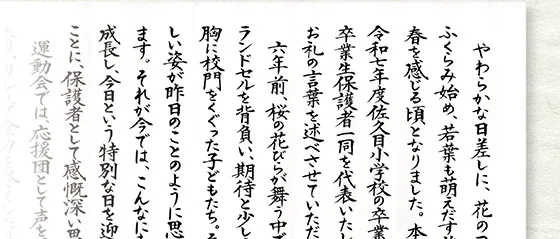 やわらかな日差しに、花の
ふくらみ始め、若葉も萌えだす
春を感じる頃となりました。本
令和七年度佐久目小学校の卒業
卒業生保護者一同を代表いたし
お礼の言葉を述べさせていただ
六年前、桜の花びらが舞う中で
ランドセルを背負い、期待と少し
胸に校門をくぐった子どもたち。そ
しい姿が昨日のことのように思
ます。それが今では、こんなに
成長し、今日という特別な日を迎
ことに、保護者として感慨深い思
運動会では、応援団として声を